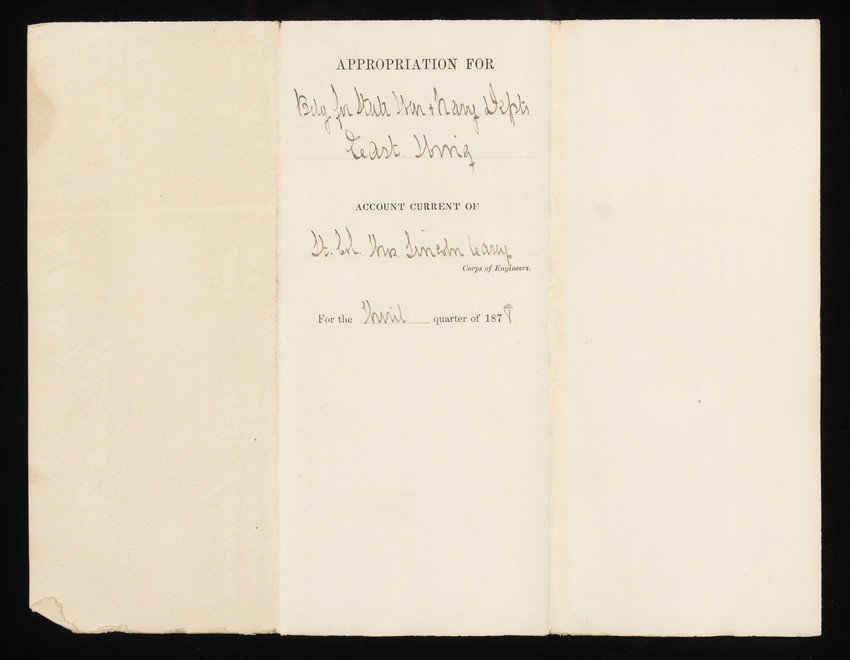 APPROPRIATION FOR
Bldg for State War & Navy Depts
East Wing
ACCOUNT CURRENT OF
Lt. Col. Thos Lincoln Casey
Corps of Engineers.
For the Third quarter of 1878